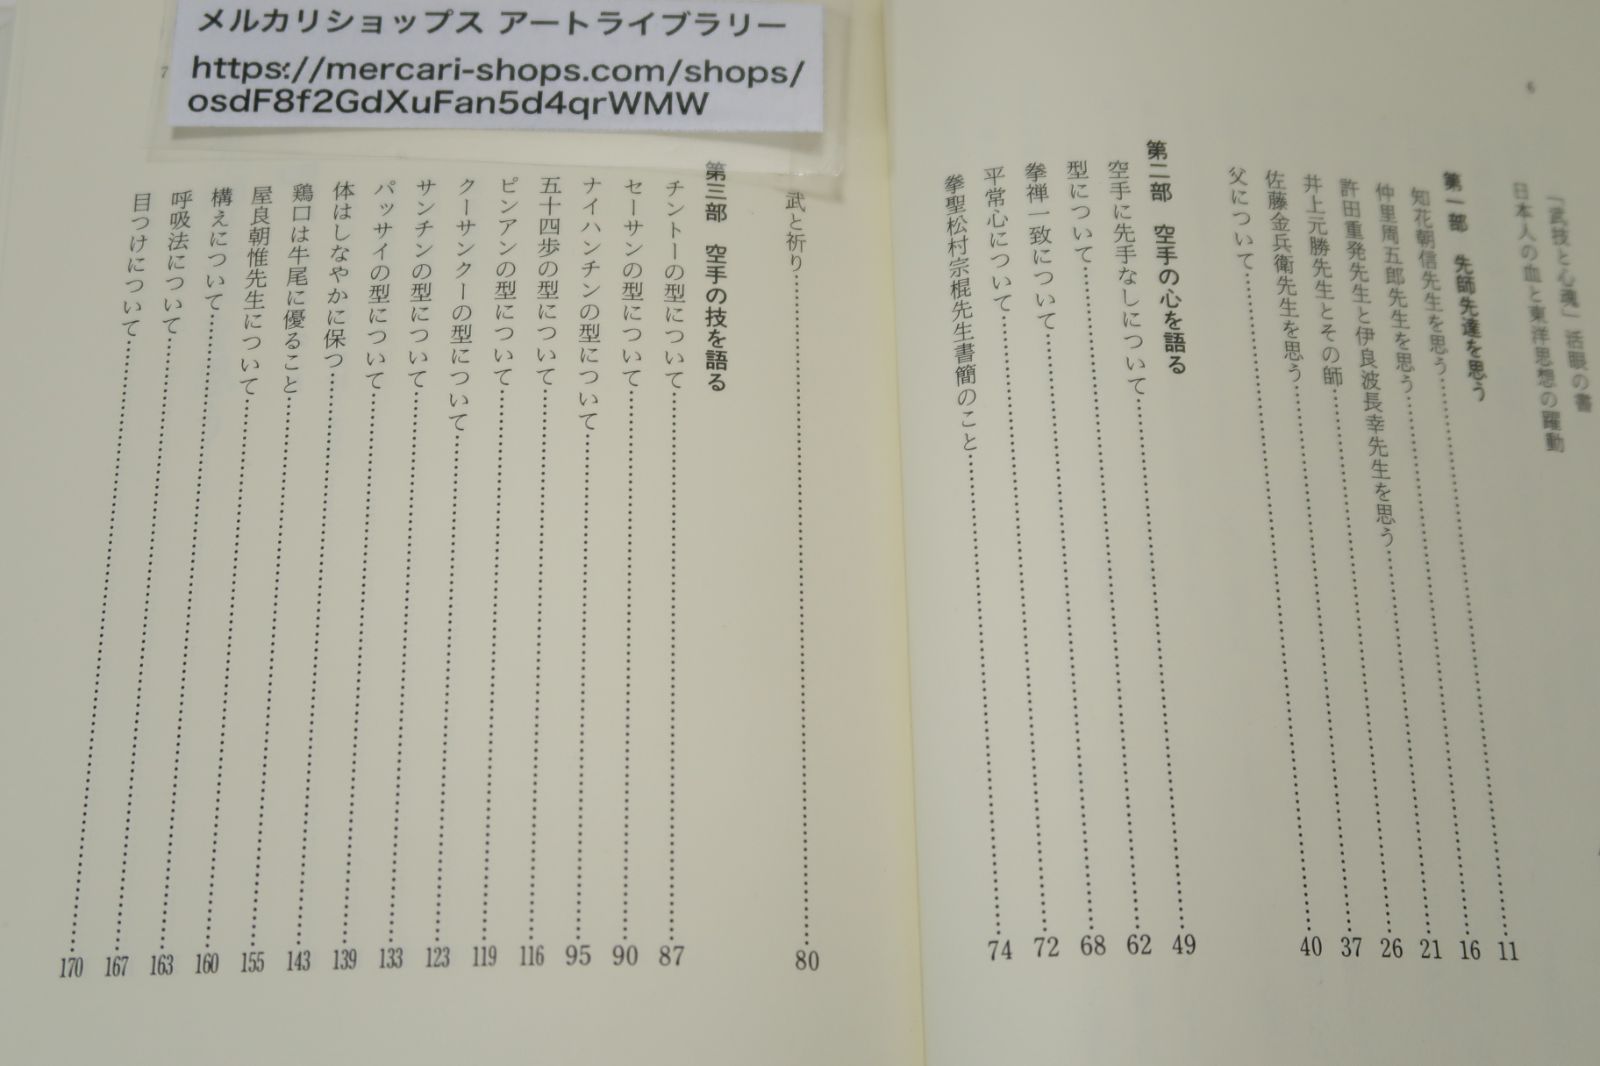 メルカリショップス アートライブラリー
https://mercari-shops.com/shops/
osdF8f2GdXuFan5d4qrWMW
6
「武技と心魂」活眼の書
日本人の血と東洋思想の躍動
第一部　先師先達を思う
知花朝信先生を思う……11
仲里周五郎先生を思う……16
許田重発先生と伊良波長幸先生を思う……21
井上元勝先生とその師……26
佐藤金兵衛先生を思う……37
父について……40
第二部　空手の心を語る
空手に先手なしについて……49
型について……62
拳禅一致について……68
平常心について……72
拳聖松村宗棍先生書簡のこと……74
7
武と祈り……80
第三部　空手の技を語る
チントーの型について……87
セーサンの型について……90
ナイハンチンの型について……95
五十四歩の型について……116
ピンアンの型について……119
クーサンクーの型について……123
サンチンの型について……133
パッサイの型について……139
体はしなやかに保つ……143
鶏口は牛尾に優ること……155
屋良朝惟先生について……160
構えについて……163
呼吸法について……167
目つけについて……170